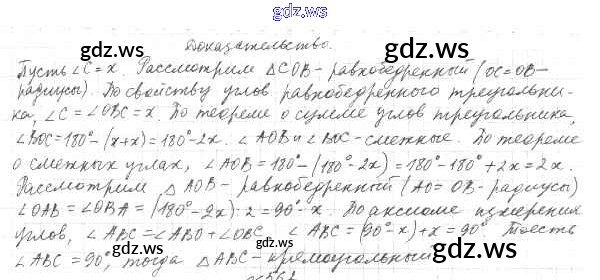 gdz.ws
Доказательство.
gdz.ws
gdz.ws
Пусть ∠C = x. Рассмотрим △COB - равнобедренный (OC=OB-
радиусы). По свойству углов равнобедренного треугольни-
ка, ∠C = ∠OBC = x. По теореме о сумме углов треугольника,
∠BOC = 180° - (x+x) = 180° - 2x. ∠AOB и ∠BOC - смежные. По теореме
о смежных углах, ∠AOB = 180° - (180° - 2x) = 180° - 180° + 2x = 2x.
Рассмотрим △AOB - равнобедренный (AO = OB - радиусы)
∠OAB = ∠OBA = (180° - 2x) : 2 = 90° - x. По аксиоме измерения
углов, ∠ABC = ∠ABO + ∠OBC ∠ABC = (90° - x) + x = 90° То есть
∠ABC = 90°, тогда △ABC - прямоугольный
gdz.ws
gdz.ws